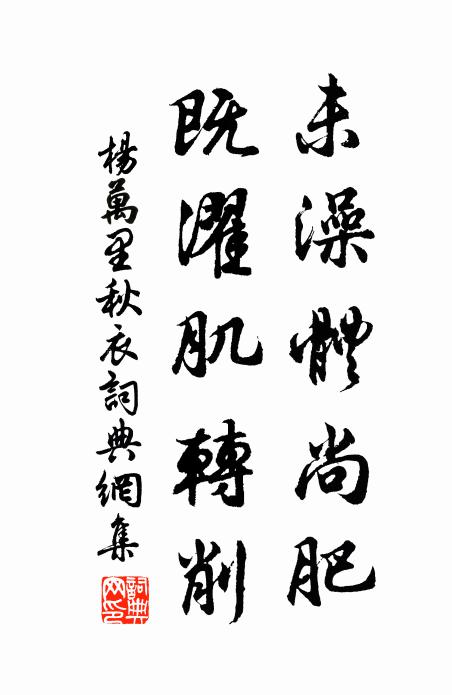 未澡體尚肥
既濯肌轉削
楊萬里秋衣詞典網集